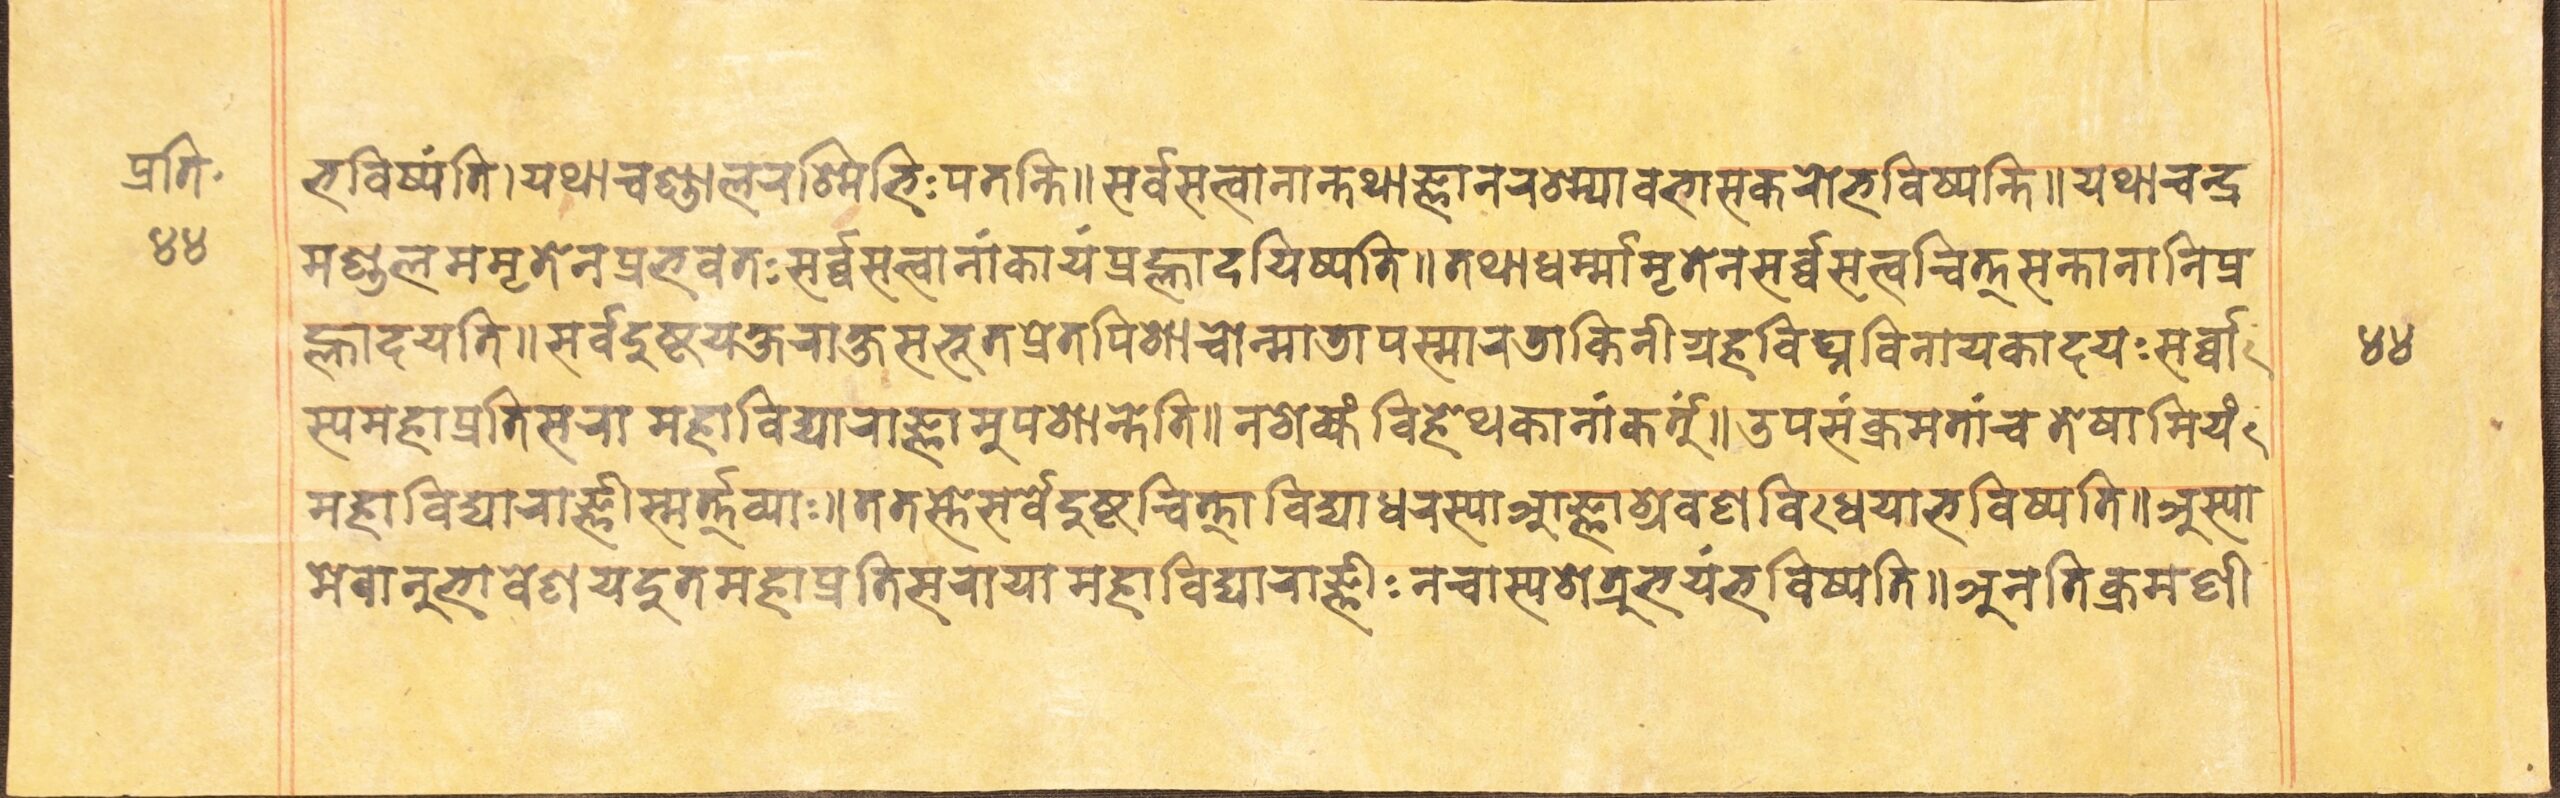 प्रति॰
४४
भविष्यंति।यथाचण्डालरश्मिभिःपतन्ति॥सर्वसत्वानान्तथाज्ञानरश्म्यावभासकरोभविष्यन्ति॥यथाचन्द्र
मण्डलममृतेनप्रभवतःसर्व्वसत्वानांकायंप्रह्लादयिष्यति॥तथाधर्म्मामृतेनसर्व्वसत्वचित्तसन्तानानिप्र
ह्लादयति॥सर्वदुष्टयक्षराक्षसभूतप्रेतपिशाचोन्मातापस्मारताकिनीग्रहविघ्नविनायकादयःसर्व्वा
४४
स्यमहाप्रतिसरामहाविद्याराज्ञामुपशान्तेति॥नशेक्यंविहेथकानांकर्त्तुं॥उपसंक्रमतांचतेषामियं
महाविद्याराज्ञीस्मर्त्तव्याः॥ततस्तेसर्वेदुष्टचित्ताविद्याधरस्याआज्ञाश्रेवणविधयाभविष्यति॥अस्या
मेवानुभावेणयदुतमहाप्रतिसरायामहाविद्याराज्ञीःनचास्यशेत्रुभयंभविष्यति॥अनतिक्रमणी